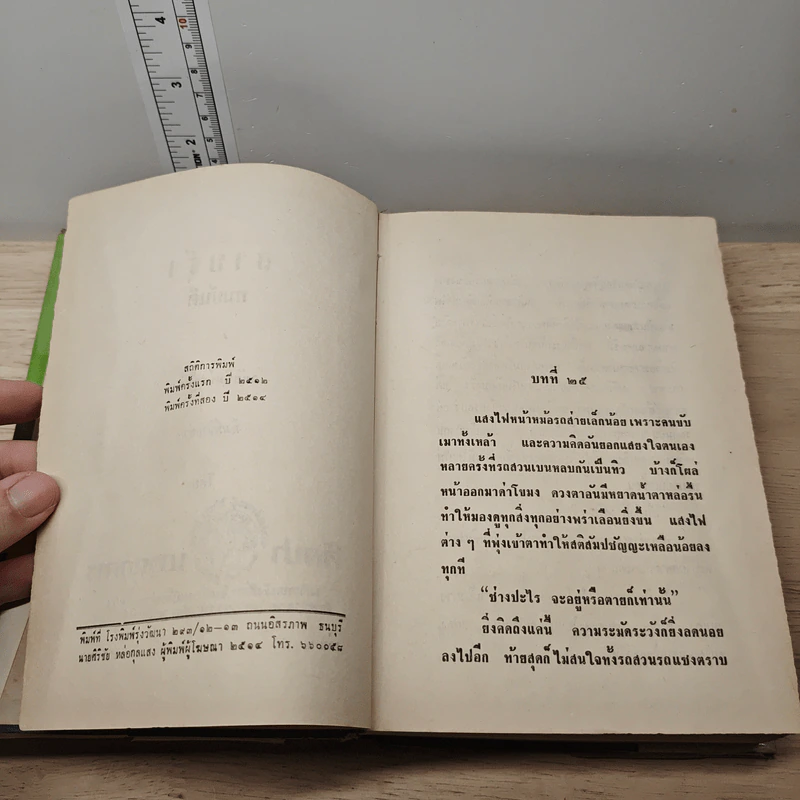 4
10
9
3
8
7
6
2
5
4
สถิติการพิมพ์
พิมพ์ครั้งแรก ปี ๒๕๑๒
พิมพ์ครั้งที่สอง ปี ๒๕๑๔
พิมพ์ที่ โรงพิมพ์รุ่งวัฒนา ๒๙๓/๑๒–๑๓ ถนนอิสรภาพ ธนบุรี
นายศิริชัย หล่อกุลแสง ผู้พิมพ์ผู้โฆษณา ๒๕๑๔ โทร. ๖๖๐๐๕๘
บทที่ ๒๕
แสงไฟหน้าหม้อรถส่ายเล็กน้อย เพราะคนขับ
เมาทั้งเหล้า และความคิดอันยอกแสยงใจตนเอง
หลายครั้งที่รถสวนเบนหลบกันเป็นทิว บ้างก็โผล่
หน้าออกมาด่าโขมง ดวงตาอันมีหยาดน้ำตาหล่อรื้น
ทำให้มองดูทุกสิ่งทุกอย่างพร่าเลือนยิ่งขึ้น แสงไฟ
ต่าง ๆ ที่พุ่งเข้าตาทำให้สติสัมปชัญญะเหลือน้อยลง
ทุกที
“ช่างปะไร จะอยู่หรือตายก็เท่านั้น”
ยิ่งคิดถึงแค่นี้ ความระมัดระวังก็ยิ่งลดน้อย
ลงไปอีก ท้ายสุดก็ไม่สนใจทั้งรถสวนรถแซงตราบ